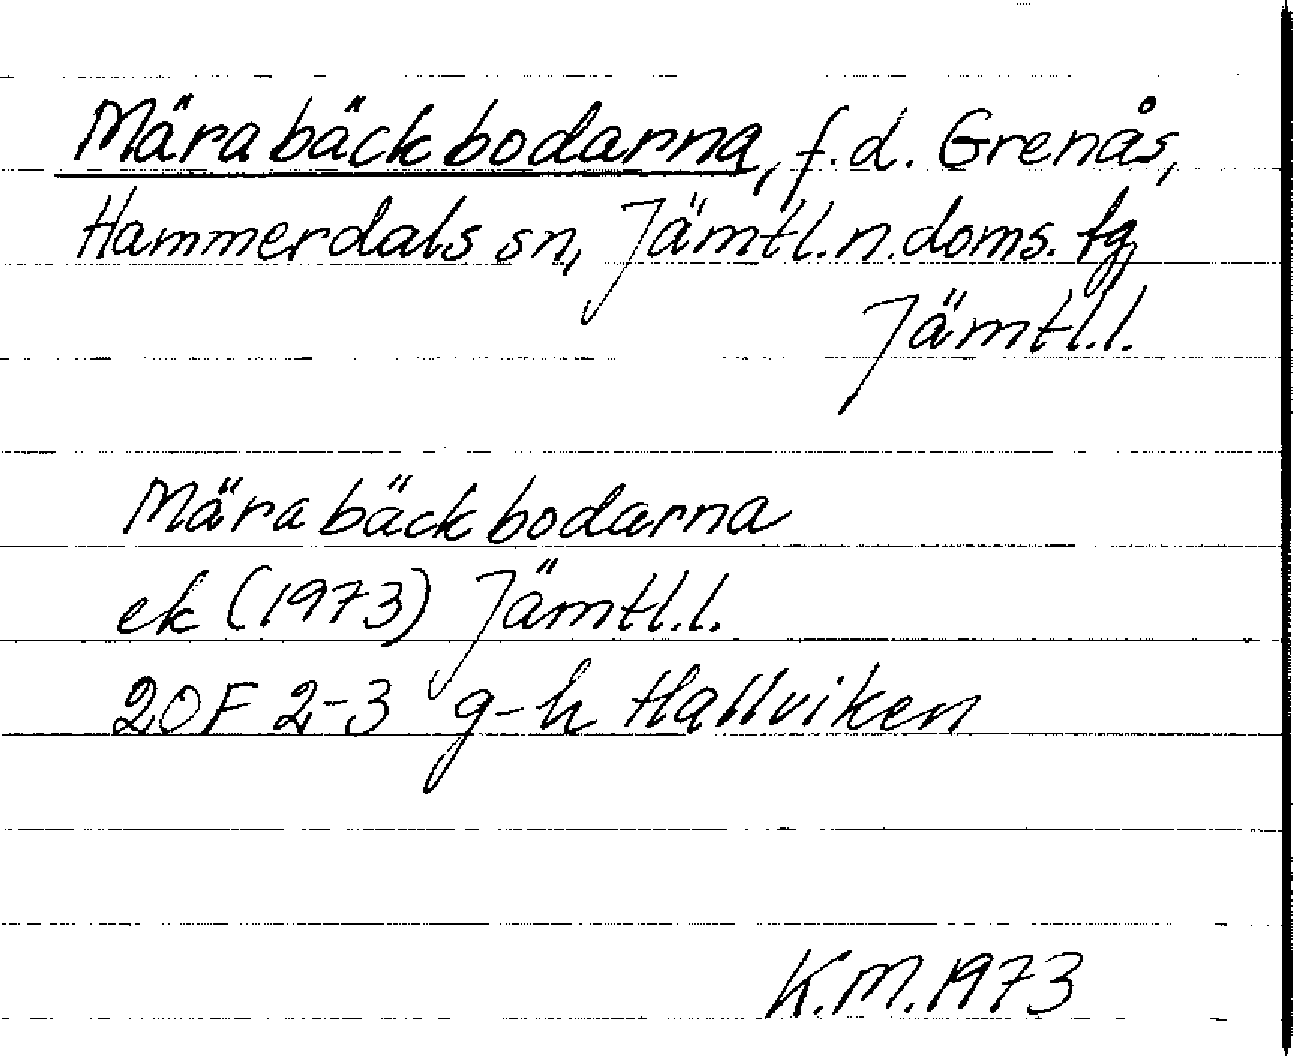 Märabäckbodarna, f.d. Grenås,
Hammerdals sn, Jämtl.n.doms.tg,
Jämtl.l.
Märabäckbodarna
ek (1973) Jämtl.l.
20F 2-3 g-h Hallviken
K.M.1973